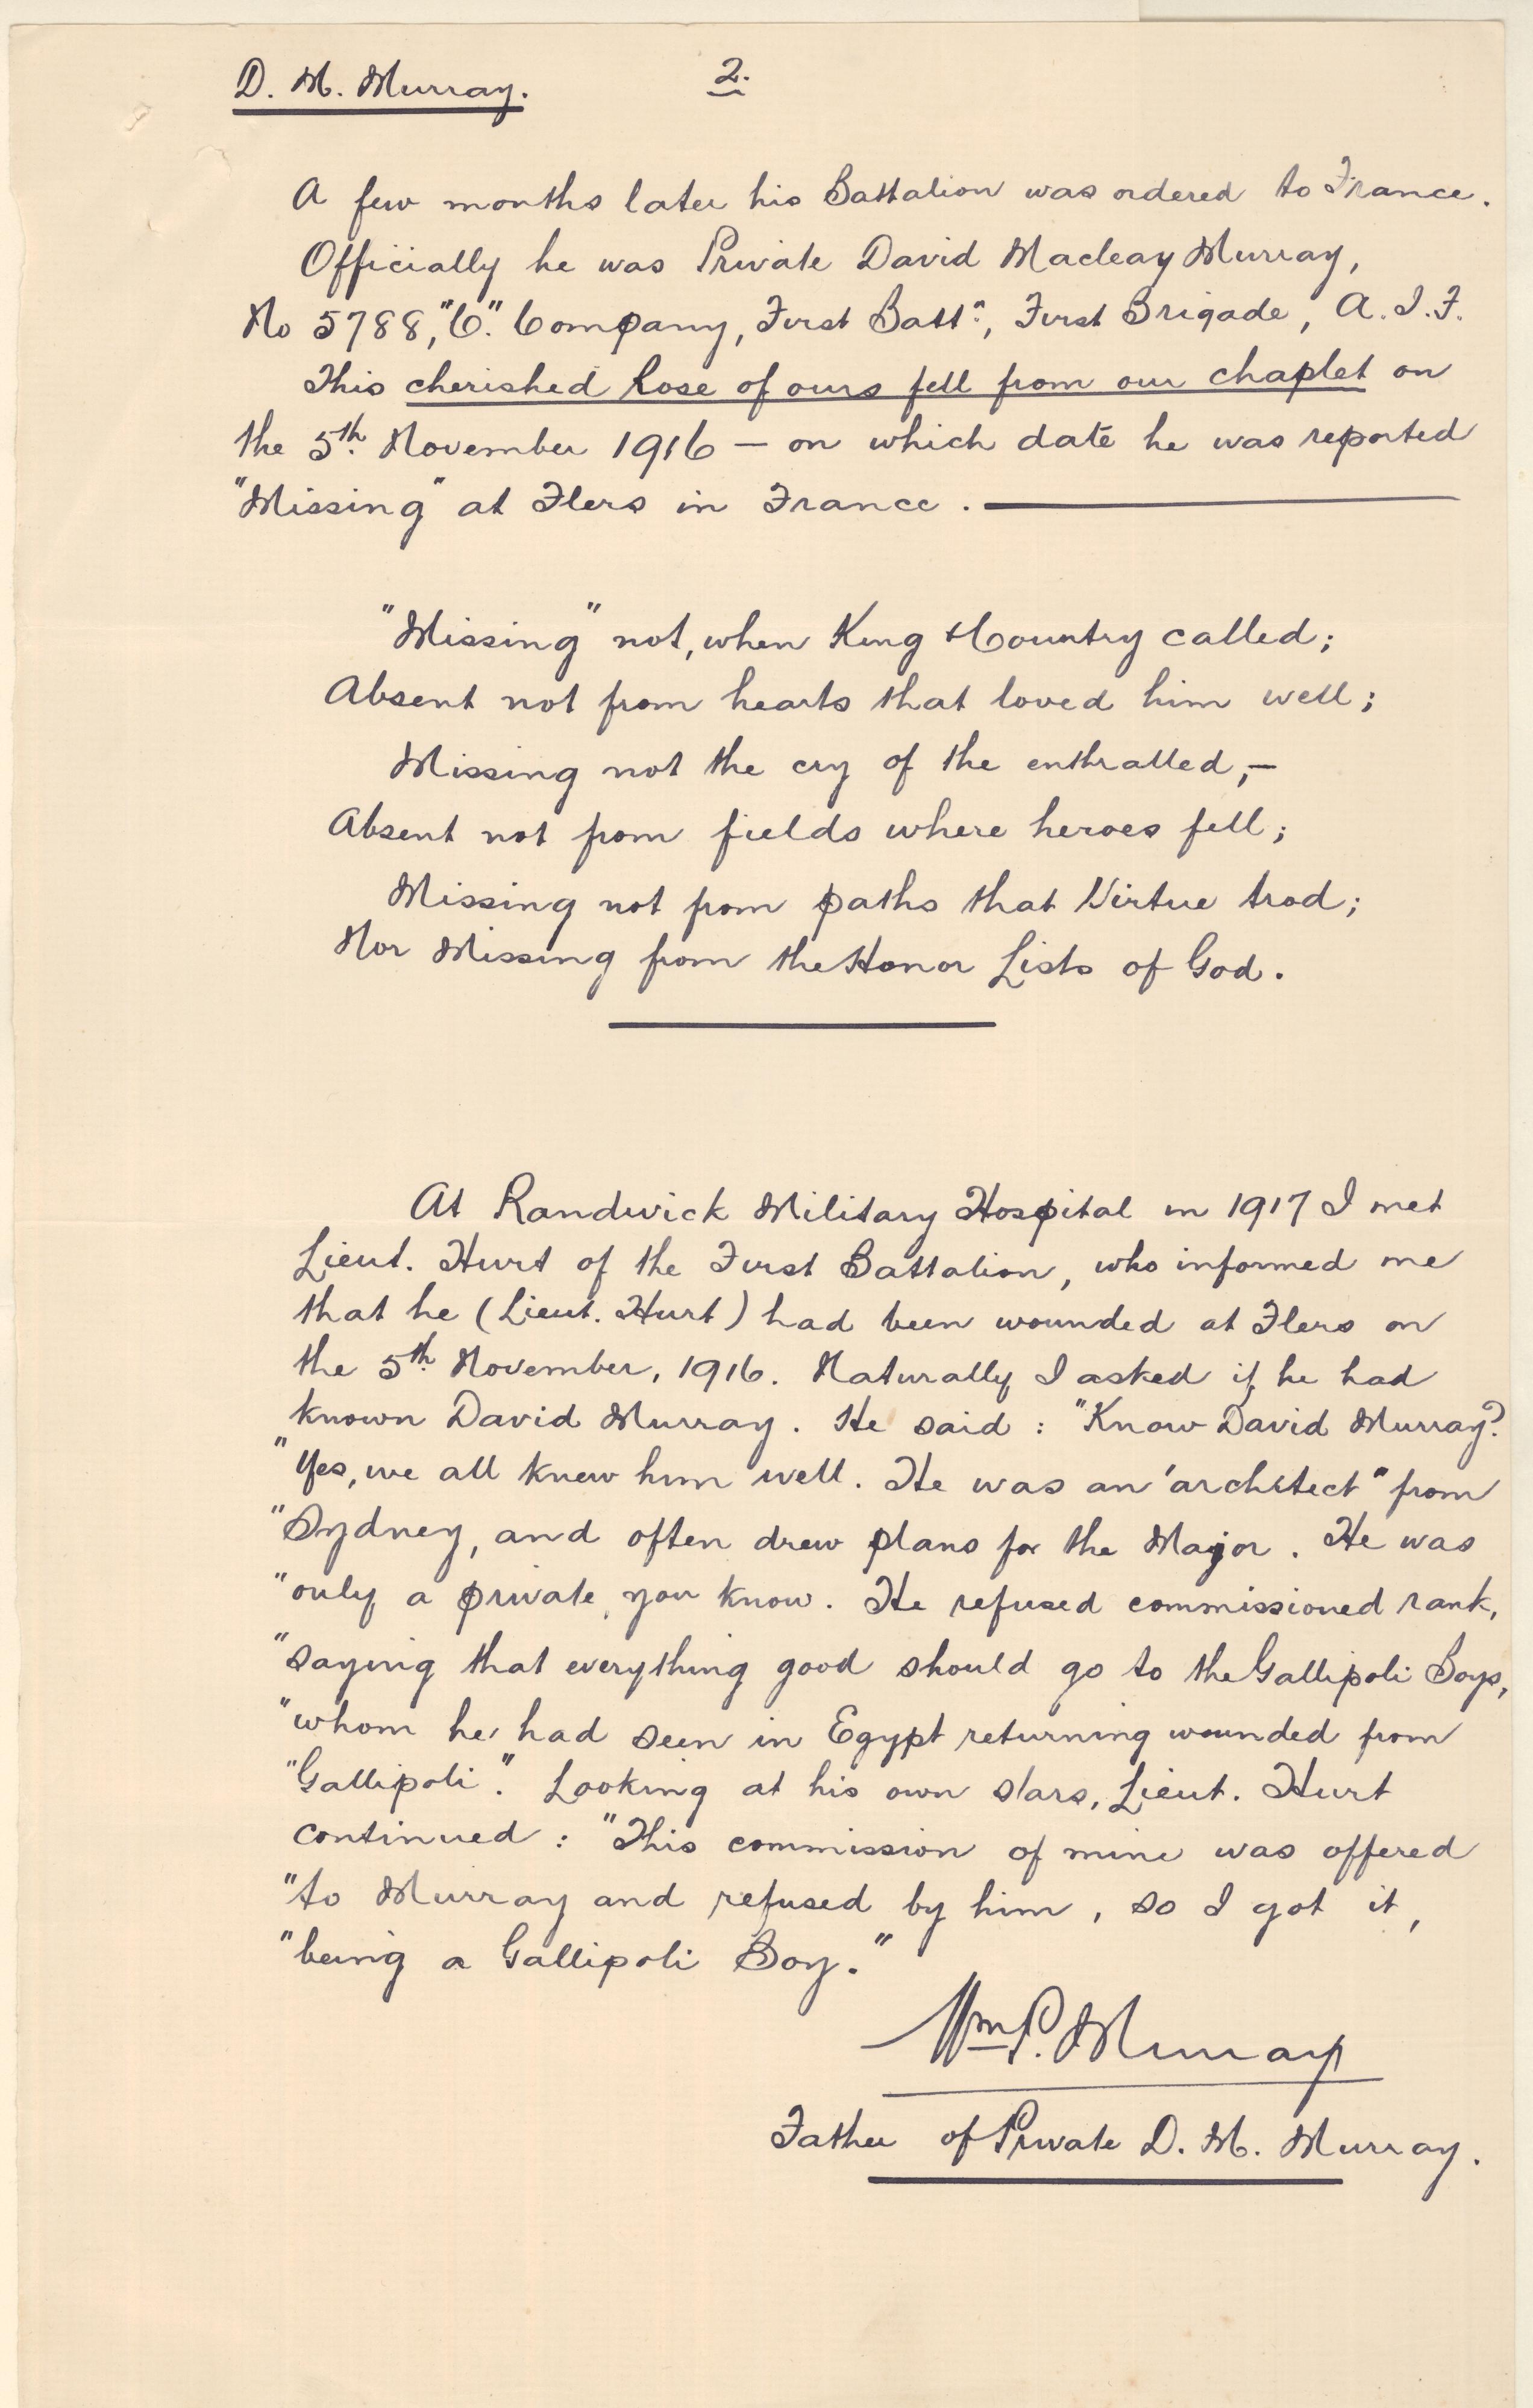 D. M. Murray. 2.
A few months later his Battalion was ordered to France.
Officially he was Private David Macleay Murray,
No 5788, "C". Company, First Battn., First Brigade, A.I.F.
This cherished Rose of ours fell from our chaplet on
the 5th. November 1916 — on which date he was reported
"Missing" at Flers in France. —
"Missing" not, when King & Country called;
Absent not from hearts that loved him well;
Missing not the cry of the enthralled, —
Absent not from fields where heroes fell;
Missing not from paths that Virtue trod;
Nor Missing from the Honor Lists of God.
At Randwick Military Hospital in 1917 I met
Lieut. Hurt of the First Battalion, who informed me
that he (Lieut. Hurt) had been wounded at Flers on
the 5th. November, 1916. Naturally I asked if he had
known David Murray. He said: "Know David Murray?
"Yes, we all knew him well. He was an 'architect" from
"Sydney, and often drew plans for the Major. He was
"only a private, you know. He refused commissioned rank,
"saying that everything good should go to the Gallipoli Boys,
"whom he had seen in Egypt returning wounded from
"Gallipoli". Looking at his own stars, Lieut. Hurt
continued: "This commission of mine was offered
"to Murray and refused by him, so I got it,
"being a Gallipoli Boy."
Wm P. Murray
Father of Private D. M. Murray.